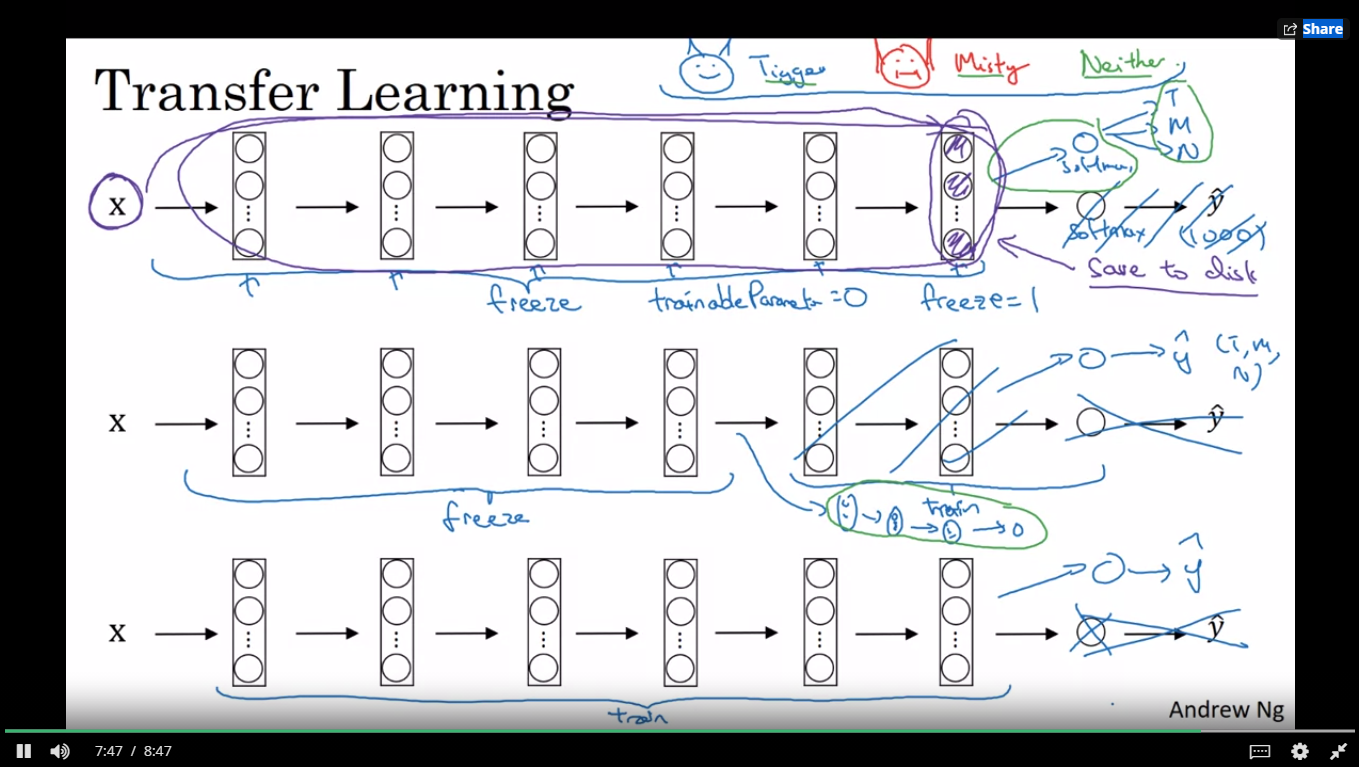 Share
Transfer Learning
Tigger
Misty
Neither
T
M
N
softmax
x
ŷ
softmax
(1000)
Save to disk
freeze
trainableParameter = 0
freeze = 1
ŷ (T, M,
N)
x
ŷ
freeze
train
ŷ
x
ŷ
train
Andrew Ng
7:47 / 8:47